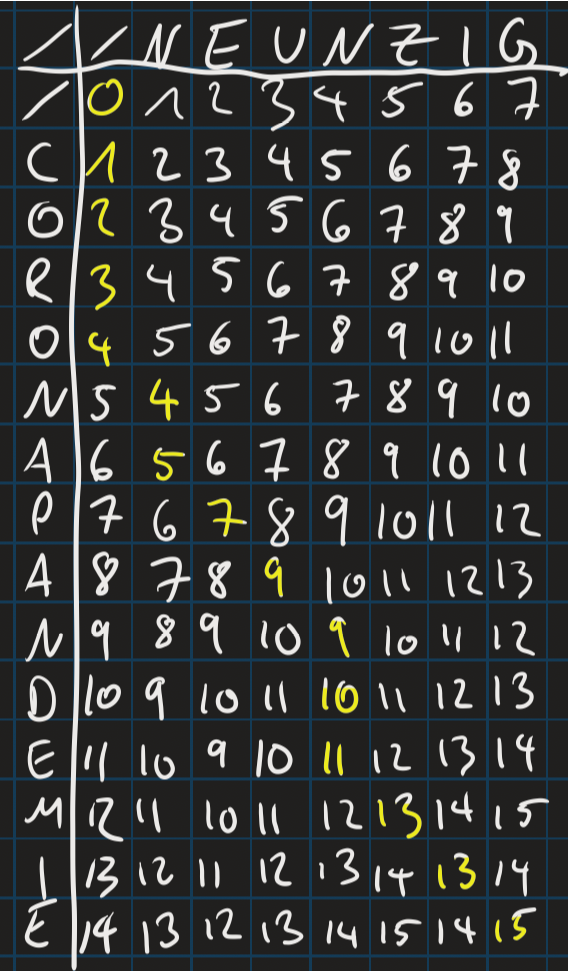 / / N E U N Z I G
/ 0 1 2 3 4 5 6 7
C 1 2 3 4 5 6 7 8
O 2 3 4 5 6 7 8 9
R 3 4 5 6 7 8 9 10
O 4 5 6 7 8 9 10 11
N 5 4 5 6 7 8 9 10
A 6 5 6 7 8 9 10 11
P 7 6 7 8 9 10 11 12
A 8 7 8 9 10 11 12 13
N 9 8 9 10 9 10 11 12
D 10 9 10 11 10 11 12 13
E 11 10 9 10 11 12 13 14
M 12 11 10 11 12 13 14 15
I 13 12 11 12 13 14 13 14
E 14 13 12 13 14 15 14 15